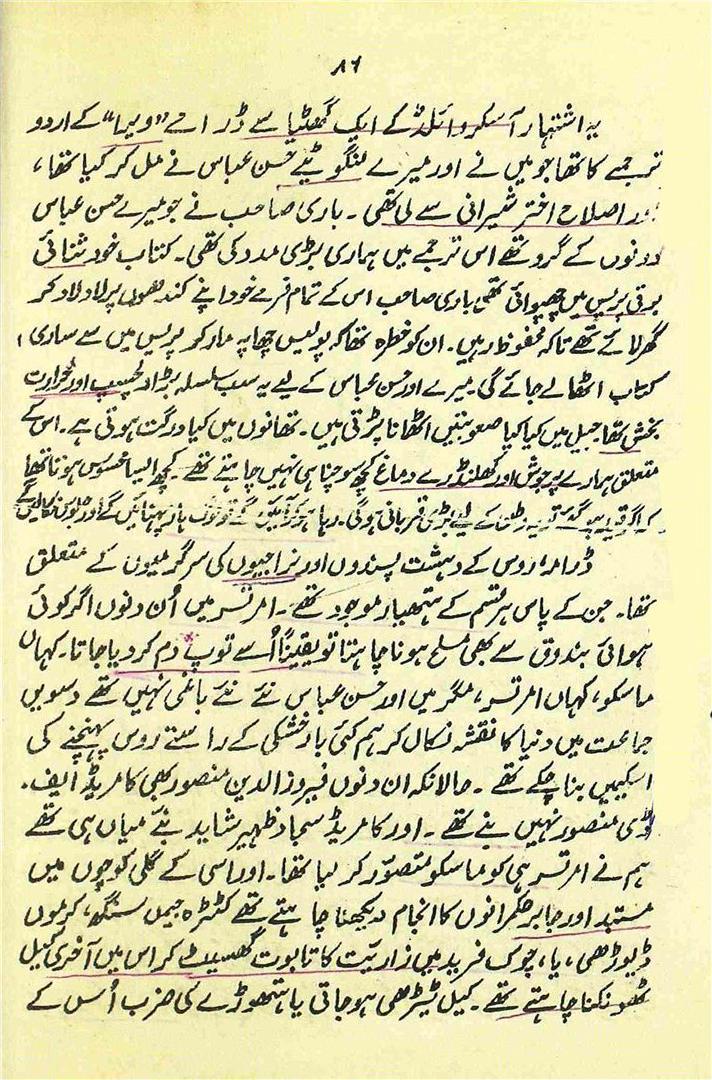 ۸۶
یہ اشتہار آسکر وائلڈ کے ایک گھٹیا سے ڈرامے ”ویرا“ کے اردو
ترجمے کا تھا جو میں نے اور میرے لنگوٹیے حسن عباس نے مل کر کیا تھا،
اور اصلاح اختر شیرانی سے لی تھی۔ باری صاحب نے جو میرے حسن عباس
دونوں کے گرو تھے اس ترجمے میں ہماری بڑی مدد کی تھی۔ کتاب خود ثنائی
برقی پریس میں چھپوائی تھی باری صاحب اس کے تمام فرمے خود اپنے کندھوں پر لاد لاد کر
گھر لائے تھے تاکہ محفوظ رہیں۔ ان کو خطرہ تھا کہ پولیس چھاپہ مار کر پریس میں سے ساری
کتاب اٹھا لے جائے گی۔ میرے اور حسن عباس کے لیے یہ سب سلسلہ بڑا دلچسپ اور حرارت
بخش تھا جیل میں کیا کیا صعوبتیں اٹھانا پڑتی ہیں۔ تھانوں میں کیا درگت ہوتی ہے۔ اس کے
متعلق ہمارے پرجوش اور کھلنڈرے دماغ کچھ سوچنا ہی نہیں چاہتے تھے۔ کچھ ایسا محسوس ہوتا تھا
کہ اگر قید ہو گئے تو یہ وطن کے لیے بڑی قربانی ہو گی۔ رہا ہو کر آئیں گے تو لوگ ہار پہنائیں گے اور جلوس نکالیں گے
ڈرامہ روس کے دہشت پسندوں اور نراجیوں کی سرگرمیوں کے متعلق
تھا۔ جن کے پاس ہر قسم کے ہتھیار موجود تھے۔ امرتسر میں اُن دنوں اگر کوئی
ہوائی بندوق سے بھی مسلح ہونا چاہتا تو یقیناً اُسے توپ دم کر دیا جاتا۔ کہاں
ماسکو، کہاں امرتسر، مگر میں اور حسن عباس نئے نئے باغی نہیں تھے دسویں
جماعت میں دنیا کا نقشہ نکال کر ہم کئی بار خشکی کے راستے روس پہنچنے کی
اسکیمیں بنا چکے تھے۔ حالانکہ ان دنوں فیروز الدین منصور بھی کامریڈ ایف۔
ڈی منصور نہیں بنے تھے۔ اور کامریڈ سجاد ظہیر شاید بنے میاں ہی تھے
ہم نے امرتسر ہی کو ماسکو متصوّر کر لیا تھا۔ اور اسی کے گلی کوچوں میں
مستبد اور جابر حکمرانوں کا انجام دیکھنا چاہتے تھے کٹڑہ جیمل سنگھ، کرموں
ڈیوڑھی، یا، چوک فرید میں زاریت کا تابوت گھسیٹ کر اس میں آخری کیل
ٹھونکنا چاہتے تھے۔ کیل ٹیڑھی ہو جاتی یا ہتھوڑے کی ضرب اُس کے